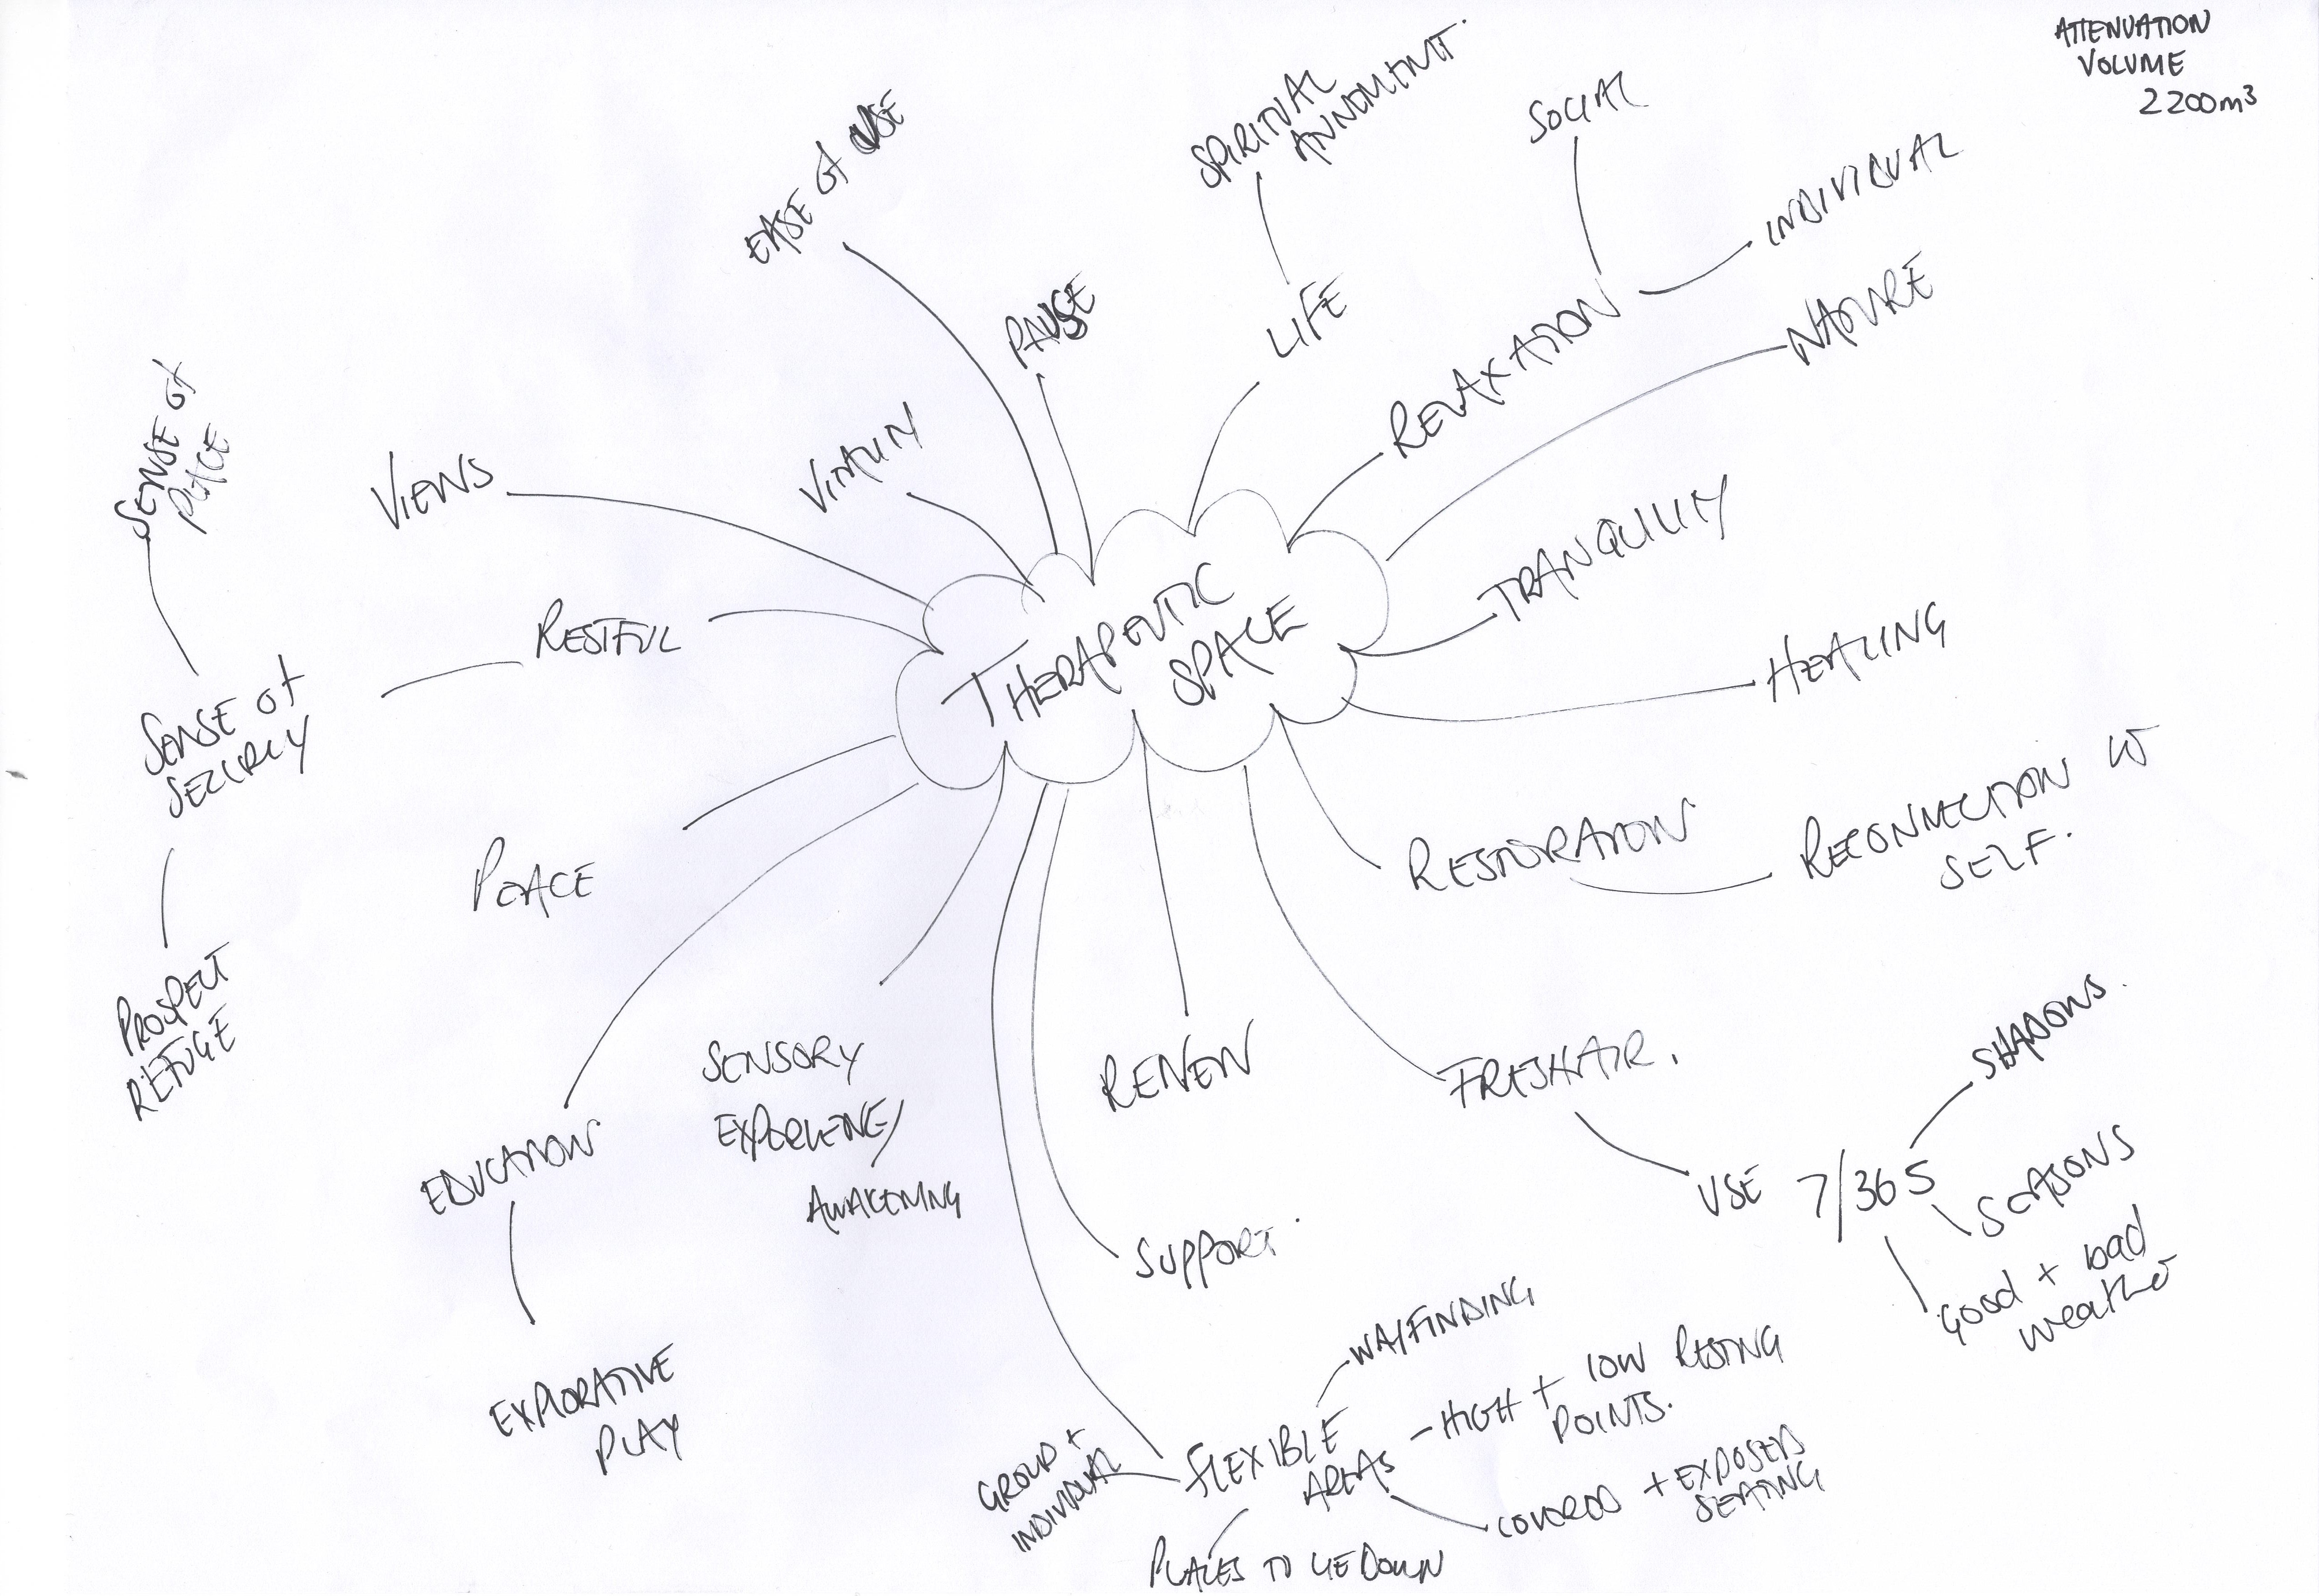 ATTENUATION
VOLUME
2200m³
SPIRITUAL
SOCIAL
EASE of USE
INDIVIDUAL
PAUSE
LIFE
NATURE
RELAXATION
SENSE of
PLACE
VIEWS
VITALITY
TRANQUILITY
THERAPEUTIC
SPACE
RESTFUL
HEALING
SENSE of
SECURITY
RECONNECTION W
SELF.
RESTORATION
PEACE
PROSPECT
REFUGE
SENSORY
EXPERIENCE/
AWAKENING
RENEW
FRESH AIR.
SHADOWS.
USE 7/365
SEASONS
Good + bad
weather
EDUCATION
SUPPORT.
EXPLORATIVE
PLAY
WAYFINDING
HIGH + LOW RESTING
POINTS.
GROUP +
INDIVIDUAL
FLEXIBLE
AREAS
COVERED + EXPOSED
SEATING
PLACES TO LIE DOWN